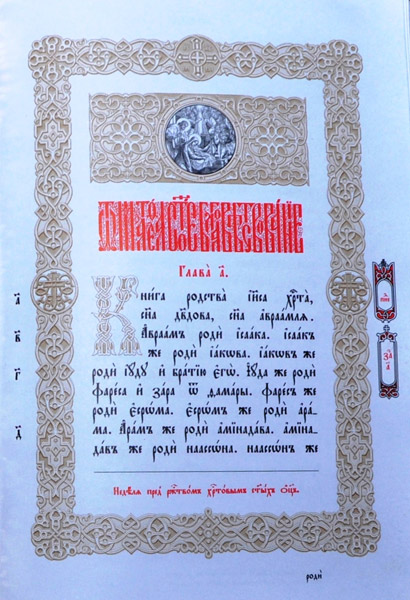 Глава̀ а҃.
Кни́га родства̀ і҆и҃са хрⷭ҇та̀,
сн҃а дв҃дова, сн҃а а҆враа́млѧ.
А҆враа́мъ родѝ і҆саа́ка. і҆саа́къ
же родѝ і҆а́кѡва. і҆а́кѡвъ же
родѝ і҆ꙋ́дꙋ и҆ бра́тїю є҆гѡ̀. І҆ꙋ́да же родѝ
фаре́са и҆ за́ра ѿ ѳама́ры. фаре́съ же
родѝ є҆срѡ́ма. є҆срѡ́мъ же родѝ а҆ра́-
ма. А҆ра́мъ же родѝ а҆мїнада́ва. а҆мїна-
да́въ же родѝ наассѡ́на. наассѡ́нъ же
а҃
в҃
г҃
д҃
За҃
а҃
Недѣ́лѧ пред̾ ржⷭ҇тво́мъ хрⷭ҇то́вымъ ст҃ы́хъ ѻ҆ц҃ъ.
родѝ